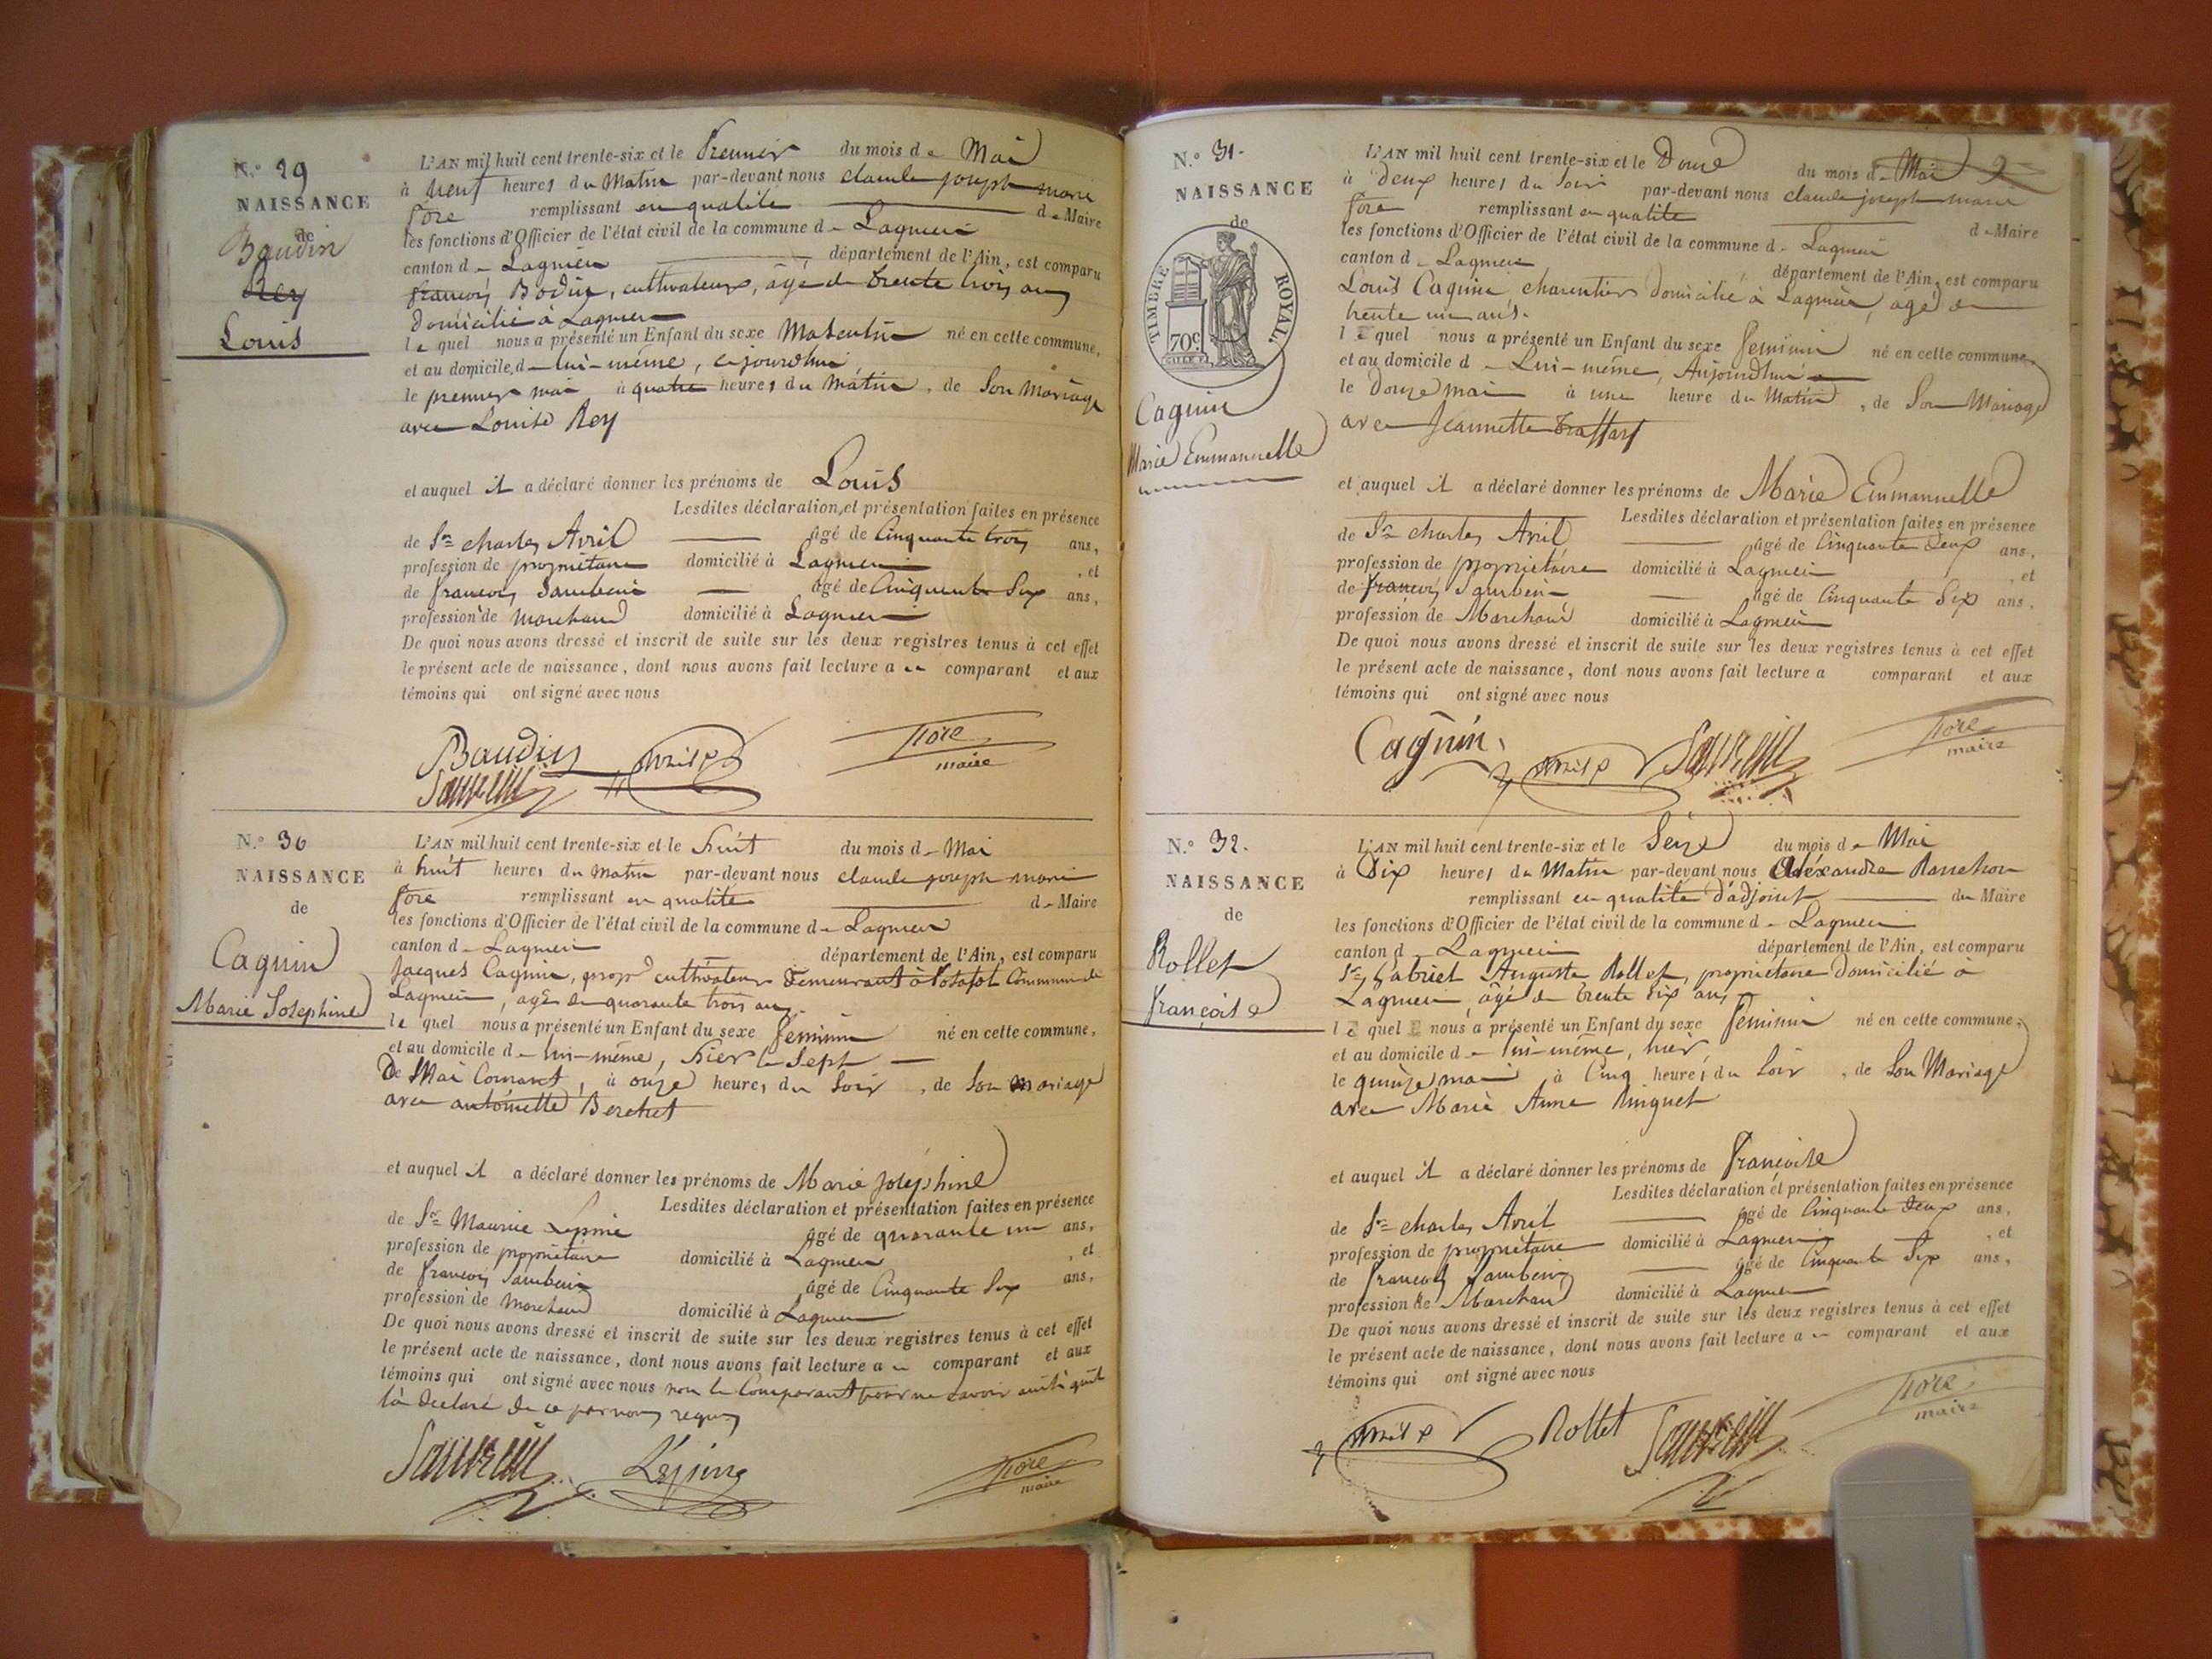 N.° 29
NAISSANCE
de
Baudin
Rey
Louis
L'AN mil huit cent trente-six et le Premier du mois de Mai
à neuf heures du Matin par-devant nous claude joseph marie
fore remplissant en qualité de Maire
les fonctions d'Officier de l'état civil de la commune de Lagnieu
canton de Lagnieu département de l'Ain, est comparu
françois Bodin, cultivateur, âgé de trente trois ans
domicilié à Lagnieu
lequel nous a présenté un Enfant du sexe Masculin né en cette commune,
et au domicile de lui-même, cejourdhui
le premier mai à quatre heures du Matin, de Son Mariage
avec Louise Rey
et auquel il a déclaré donner les prénoms de Louis
Lesdites déclaration et présentation faites en présence
de Sr charles Avril âgé de Cinquante trois ans,
profession de propriétaire domicilié à Lagnieu, et
de françois Sambein âgé de Cinquante Six ans,
profession de Marchand domicilié à Lagnieu
De quoi nous avons dressé et inscrit de suite sur les deux registres tenus à cet effet
le présent acte de naissance, dont nous avons fait lecture au comparant et aux
témoins qui ont signé avec nous
Baudin Avril fore
maire
N.° 30
NAISSANCE
de
Cagnin
Marie Josephine
L'AN mil huit cent trente-six et le huit du mois de Mai
à huit heures du Matin par-devant nous claude joseph marie
fore remplissant en qualité de Maire
les fonctions d'Officier de l'état civil de la commune de Lagnieu
canton de Lagnieu département de l'Ain, est comparu
Jacques Cagnin, propre cultivateur demeurant à Commune de
Lagnieu, âgé de quarante trois ans
lequel nous a présenté un Enfant du sexe feminin né en cette commune,
et au domicile de lui-même, hier le Sept
de Mai Courant, à onze heures du Soir, de Son Mariage
avec antoinette Berchet
et auquel il a déclaré donner les prénoms de Marie Joséphine
Lesdites déclaration et présentation faites en présence
de Sr Maurice Lepine âgé de quarante un ans,
profession de propriétaire domicilié à Lagnieu, et
de françois Sambein âgé de Cinquante Six ans,
profession de Marchand domicilié à Lagnieu
De quoi nous avons dressé et inscrit de suite sur les deux registres tenus à cet effet
le présent acte de naissance, dont nous avons fait lecture au comparant et aux
témoins qui ont signé avec nous non le Comparant pour ne savoir ainsi qu'il
l'a déclaré de ce par nous requis
Lépine fore
maire
N.° 31.
NAISSANCE
de
TIMBRE ROYAL.
70c
Cagnin
Marie Emmanuelle
L'AN mil huit cent trente-six et le Douze du mois de Mai
à Deux heures du Soir par-devant nous claude joseph marie
fore remplissant en qualité de Maire
les fonctions d'Officier de l'état civil de la commune de Lagnieu
canton de Lagnieu département de l'Ain, est comparu
Louis Cagnin charpentier domicilié à Lagnieu, âgé de
trente un ans.
lequel nous a présenté un Enfant du sexe feminin né en cette commune,
et au domicile de Lui-même, Aujourdhui
le Douze mai à une heure du Matin, de Son Mariage
avec Jeannette
et auquel il a déclaré donner les prénoms de Marie Emmanuelle
Lesdites déclaration et présentation faites en présence
de Sr charles Avril âgé de Cinquante Deux ans,
profession de propriétaire domicilié à Lagnieu, et
de françois Sambein âgé de Cinquante Six ans,
profession de Marchand domicilié à Lagnieu
De quoi nous avons dressé et inscrit de suite sur les deux registres tenus à cet effet
le présent acte de naissance, dont nous avons fait lecture a comparant et aux
témoins qui ont signé avec nous
Cagnin Avril fore
maire
N.° 32.
NAISSANCE
de
Rollet
françoise
L'AN mil huit cent trente-six et le Seize du mois de Mai
à Dix heures du Matin par-devant nous Aléxandre
remplissant en qualité d'adjoint du Maire
les fonctions d'Officier de l'état civil de la commune de Lagnieu
canton de Lagnieu département de l'Ain, est comparu
Sr Gabriel Auguste Rollet, proprietaire Domicilié à
Lagnieu âgé de trente six ans
lequel nous a présenté un Enfant du sexe feminin né en cette commune,
et au domicile de lui-même, hier
le quinze mai à Cinq heures du Soir, de Son Mariage
avec Marie Anne Ringuet
et auquel il a déclaré donner les prénoms de françoise
Lesdites déclaration et présentation faites en présence
de Sr charles Avril âgé de Cinquante Deux ans,
profession de propriétaire domicilié à Lagnieu, et
de françois Sambein âgé de Cinquante Six ans,
profession de Marchand domicilié à Lagnieu
De quoi nous avons dressé et inscrit de suite sur les deux registres tenus à cet effet
le présent acte de naissance, dont nous avons fait lecture au comparant et aux
témoins qui ont signé avec nous
Avril Rollet fore
maire